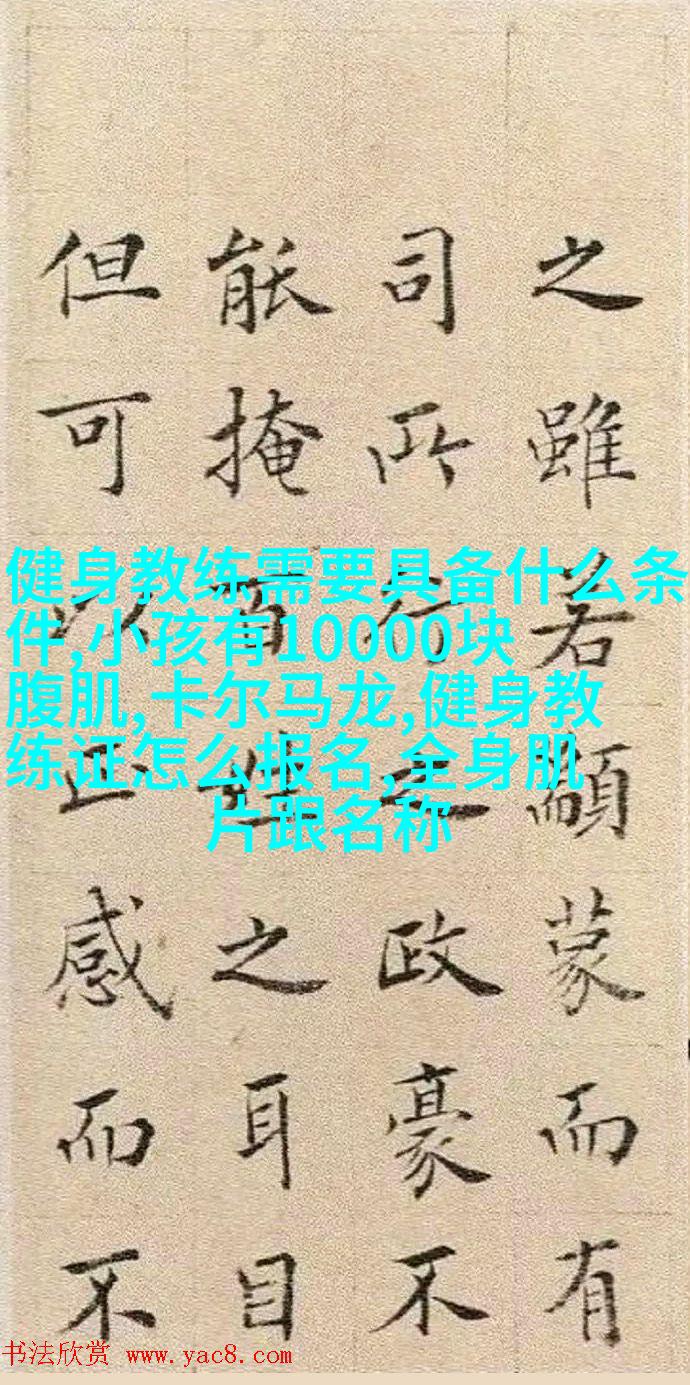 之雖若顓蒙而有
司所行之政豪不
能掩百姓之耳目
但可以感而不
健身教练需要具备什么条
件,小孩有10000块
腹肌,卡尔马龙,健身教
练证怎么报名,全身肌
片跟名称
书法欣赏 www.yac8.com